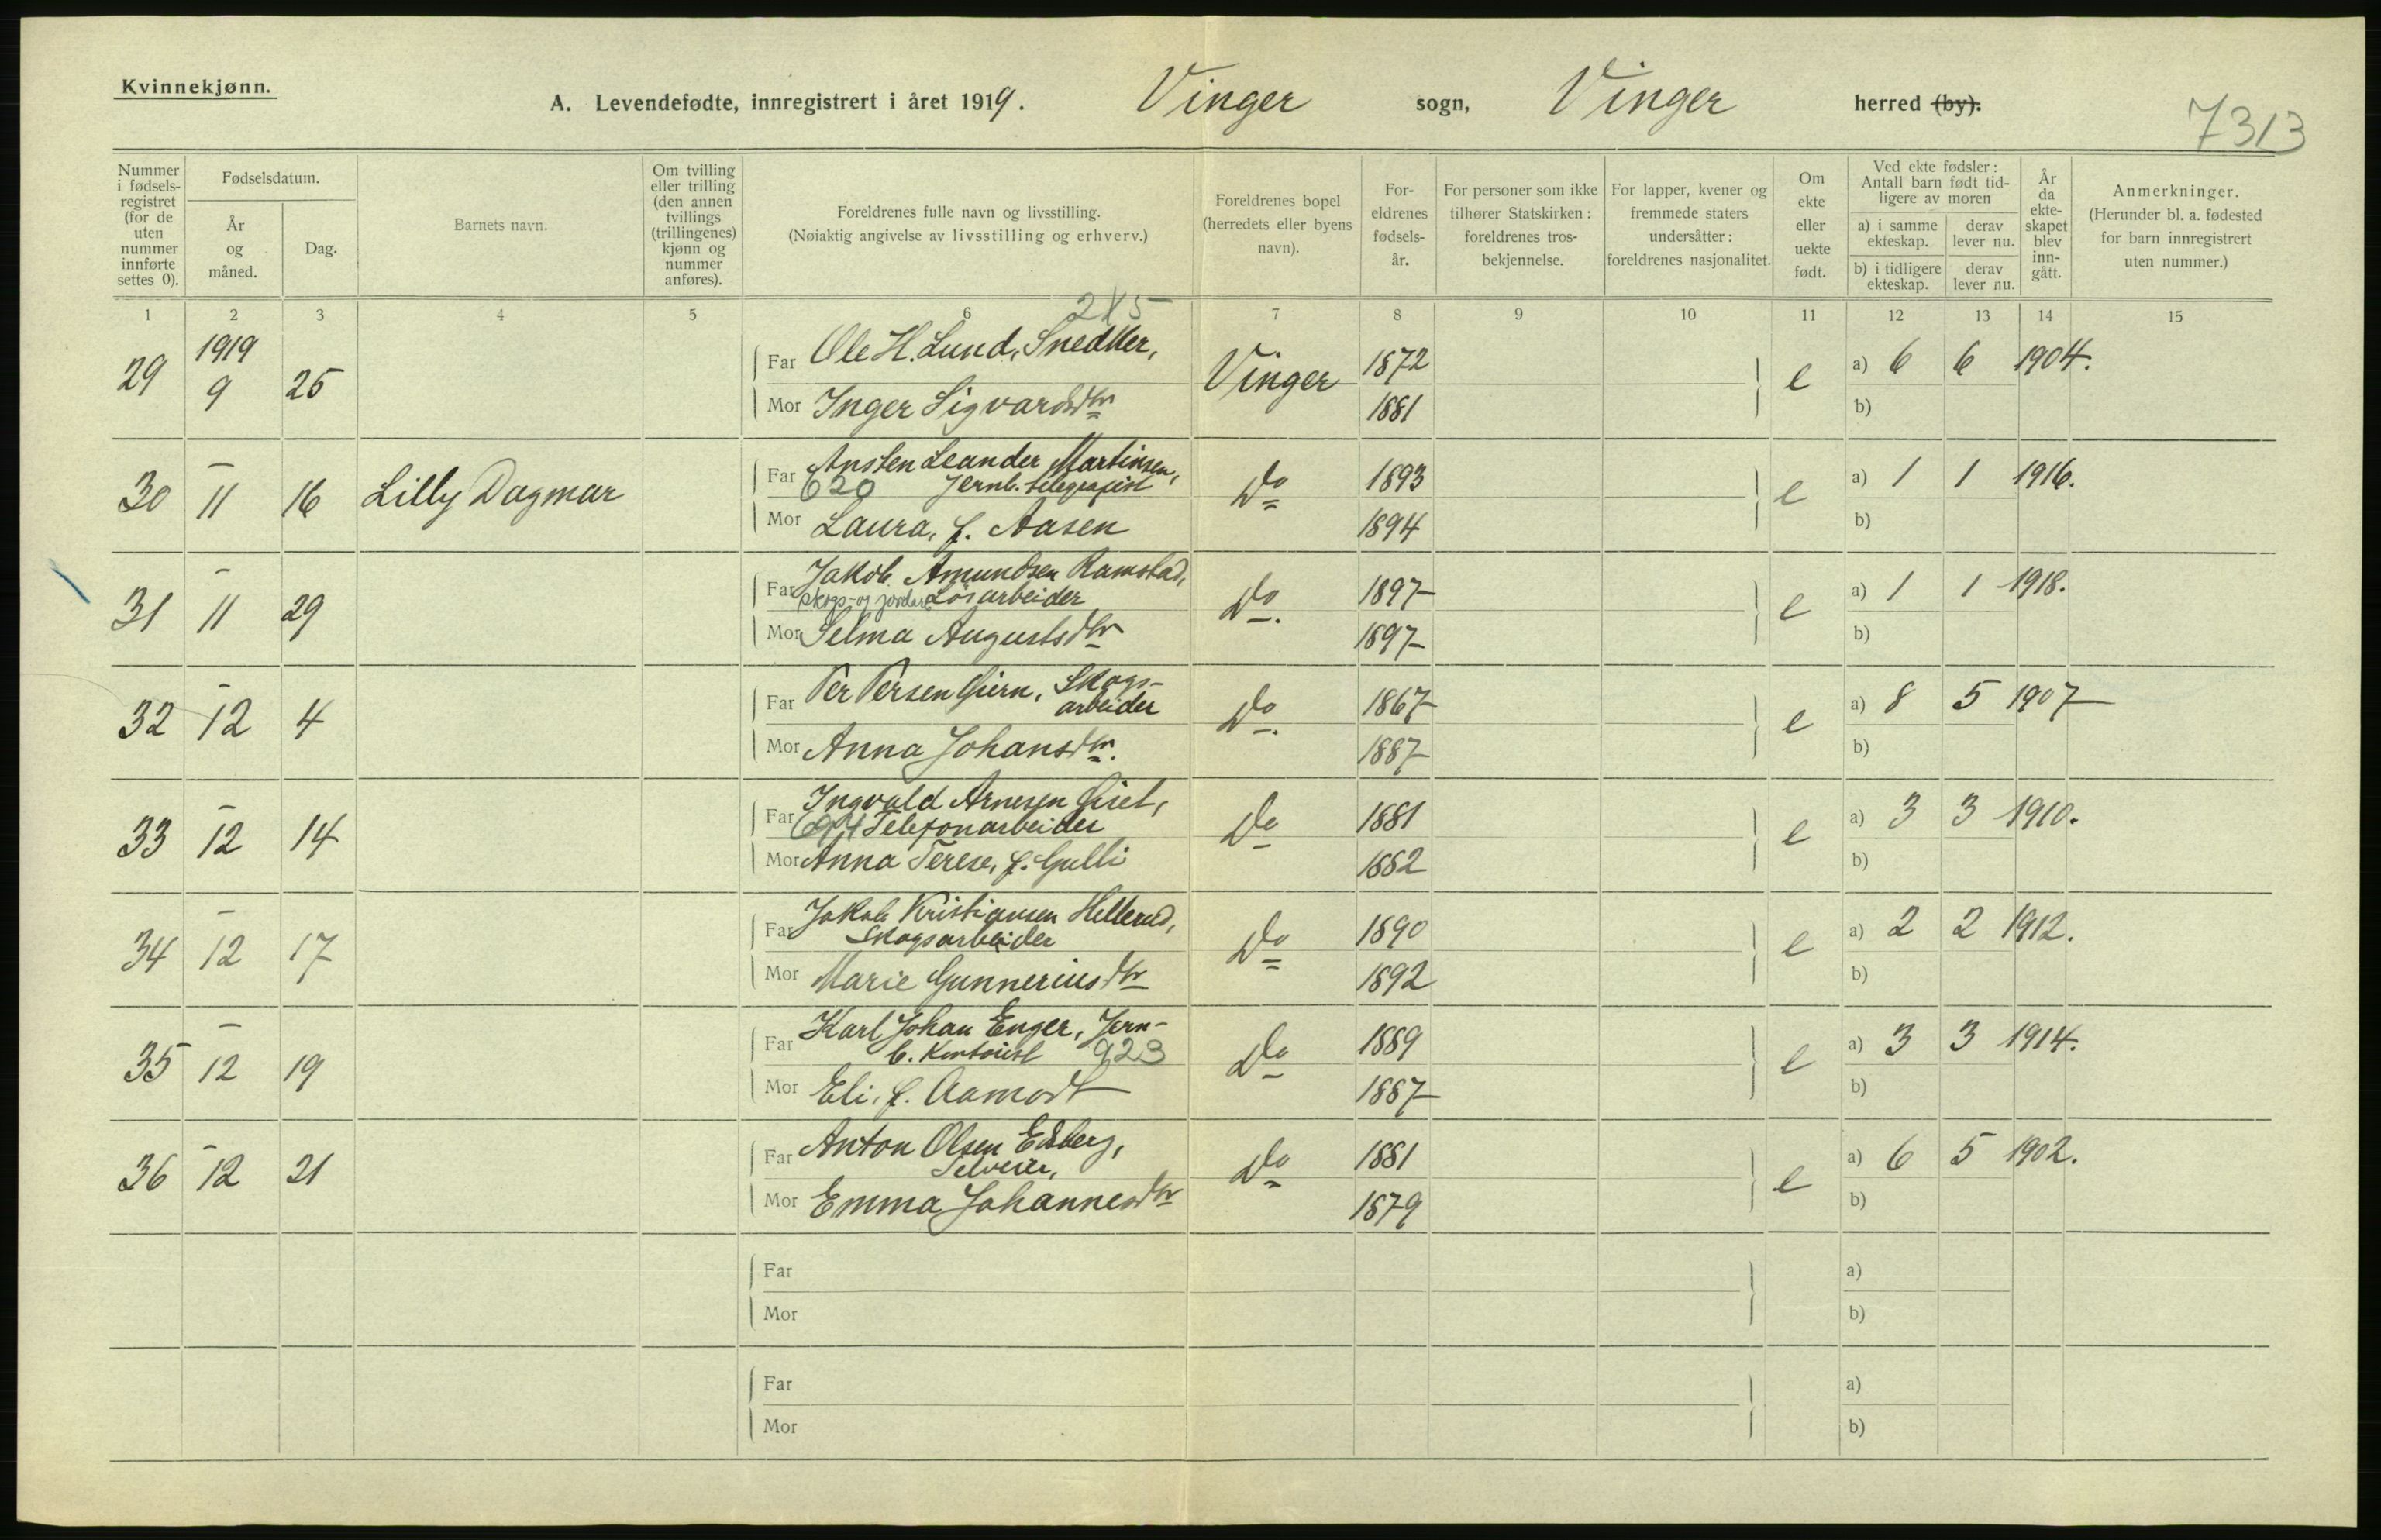 Kvinnekjønn.
A. Levendefødte, innregistrert i året 1919. Vinger sogn, Vinger herred (by).
7313
Nummer i fødselsregistret (for de uten nummer innførte settes 0).
Fødselsdatum.
År og måned.
Dag.
Barnets navn.
Om tvilling eller trilling (den annen tvillings (trillingenes) kjønn og nummer anføres).
Foreldrenes fulle navn og livsstilling.
(Nøiaktig angivelse av livsstilling og erhverv.)
Foreldrenes bopel (herredets eller byens navn).
Foreldrenes fødselsår.
For personer som ikke tilhører Statskirken: foreldrenes trosbekjennelse.
For lapper, kvener og fremmede staters undersåtter: foreldrenes nasjonalitet.
Om ekte eller uekte født.
Ved ekte fødsler: Antall barn født tidligere av moren
a) i samme ekteskap. derav lever nu.
b) i tidligere ekteskap. derav lever nu.
År da ekteskapet blev inngått.
Anmerkninger.
(Herunder bl. a. fødested for barn innregistrert uten nummer.)
1 2 3 4 5 6 7 8 9 10 11 12 13 14 15
2X5
29 1919 9 25 Far Ole H. Lund, Snedker, Vinger 1872 e a) 6 6 1904.
Mor Inger Sigvardsdtr 1881 b)
30 – 11 16 Lilly Dagmar Far Ansten Leander Martinsen, Do 1893 e a) 1 1 1916.
620 Jernb. telegrafist
Mor Laura, f. Aasen 1894 b)
31 – 11 29 Far Jakob Amundsen Ramstad, Do. 1897 e a) 1 1 1918.
Skogs- og jordarb. Løsarbeider
Mor Selma Augustsdtr 1897 b)
32 – 12 4 Far Per Persen Gjern, Skogs-arbeider Do. 1867 e a) 8 5 1907
Mor Anna Johansdtr. 1887 b)
33 – 12 14 Far Ingvald Arnesen Giset, Do 1881 e a) 3 3 1910.
694 Telefonarbeider
Mor Anna Terese, f. Gulli 1882 b)
34 – 12 17 Far Jakob Kristiansen Hellerud, Do 1890 e a) 2 2 1912.
Skogsarbeider
Mor Marie Gunneriusdtr 1892 b)
35 – 12 19 Far Karl Johan Enger, Jern- Do 1889 e a) 3 3 1914.
b. Kontorist 923
Mor Eli, f. Aamodt 1887 b)
36 – 12 21 Far Anton Olsen Edsberg, Do 1881 e a) 6 5 1902.
Selveier,
Mor Emma Johannesdtr 1879 b)
Far a)
Mor b)
Far a)
Mor b)